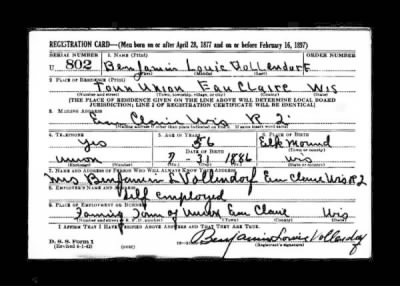 REGISTRATION CARD—(Men born on or after April 28, 1877 and on or before February 16, 1897)
SERIAL NUMBER 1. NAME (Print) ORDER NUMBER
U 802 Benjamin Louis Vollendorf
(First) (Middle) (Last)
2. PLACE OF RESIDENCE (Print)
Town Union Eau Claire Wis
(Number and street) (Town, township, village, or city) (County) (State)
[THE PLACE OF RESIDENCE GIVEN ON THE LINE ABOVE WILL DETERMINE LOCAL BOARD
JURISDICTION; LINE 2 OF REGISTRATION CERTIFICATE WILL BE IDENTICAL]
3. MAILING ADDRESS
Eau Claire Wis R 2
4. TELEPHONE 5. AGE IN YEARS 6. PLACE OF BIRTH
Yes 56 Elk Mound
DATE OF BIRTH (Town or county)
Union 7-31 1886 Wis
(Exchange) (Number) (Mo.) (Day) (Yr.) (State or country)
7. NAME AND ADDRESS OF PERSON WHO WILL ALWAYS KNOW YOUR ADDRESS
Mrs Benjamin L Vollendorf Eau Claire Wis R 2
8. EMPLOYER'S NAME AND ADDRESS
Self employed
9. PLACE OF EMPLOYMENT OR BUSINESS
Farming Town of Union Eau Claire Wis
(Number and street or R. F. D. number) (Town) (County) (State)
I AFFIRM THAT I HAVE VERIFIED ABOVE ANSWERS AND THAT THEY ARE TRUE.
D. S. S. Form 1
(Revised 4-1-42) (over) Benjamin Louis Vollendorf
(Registrant's signature)